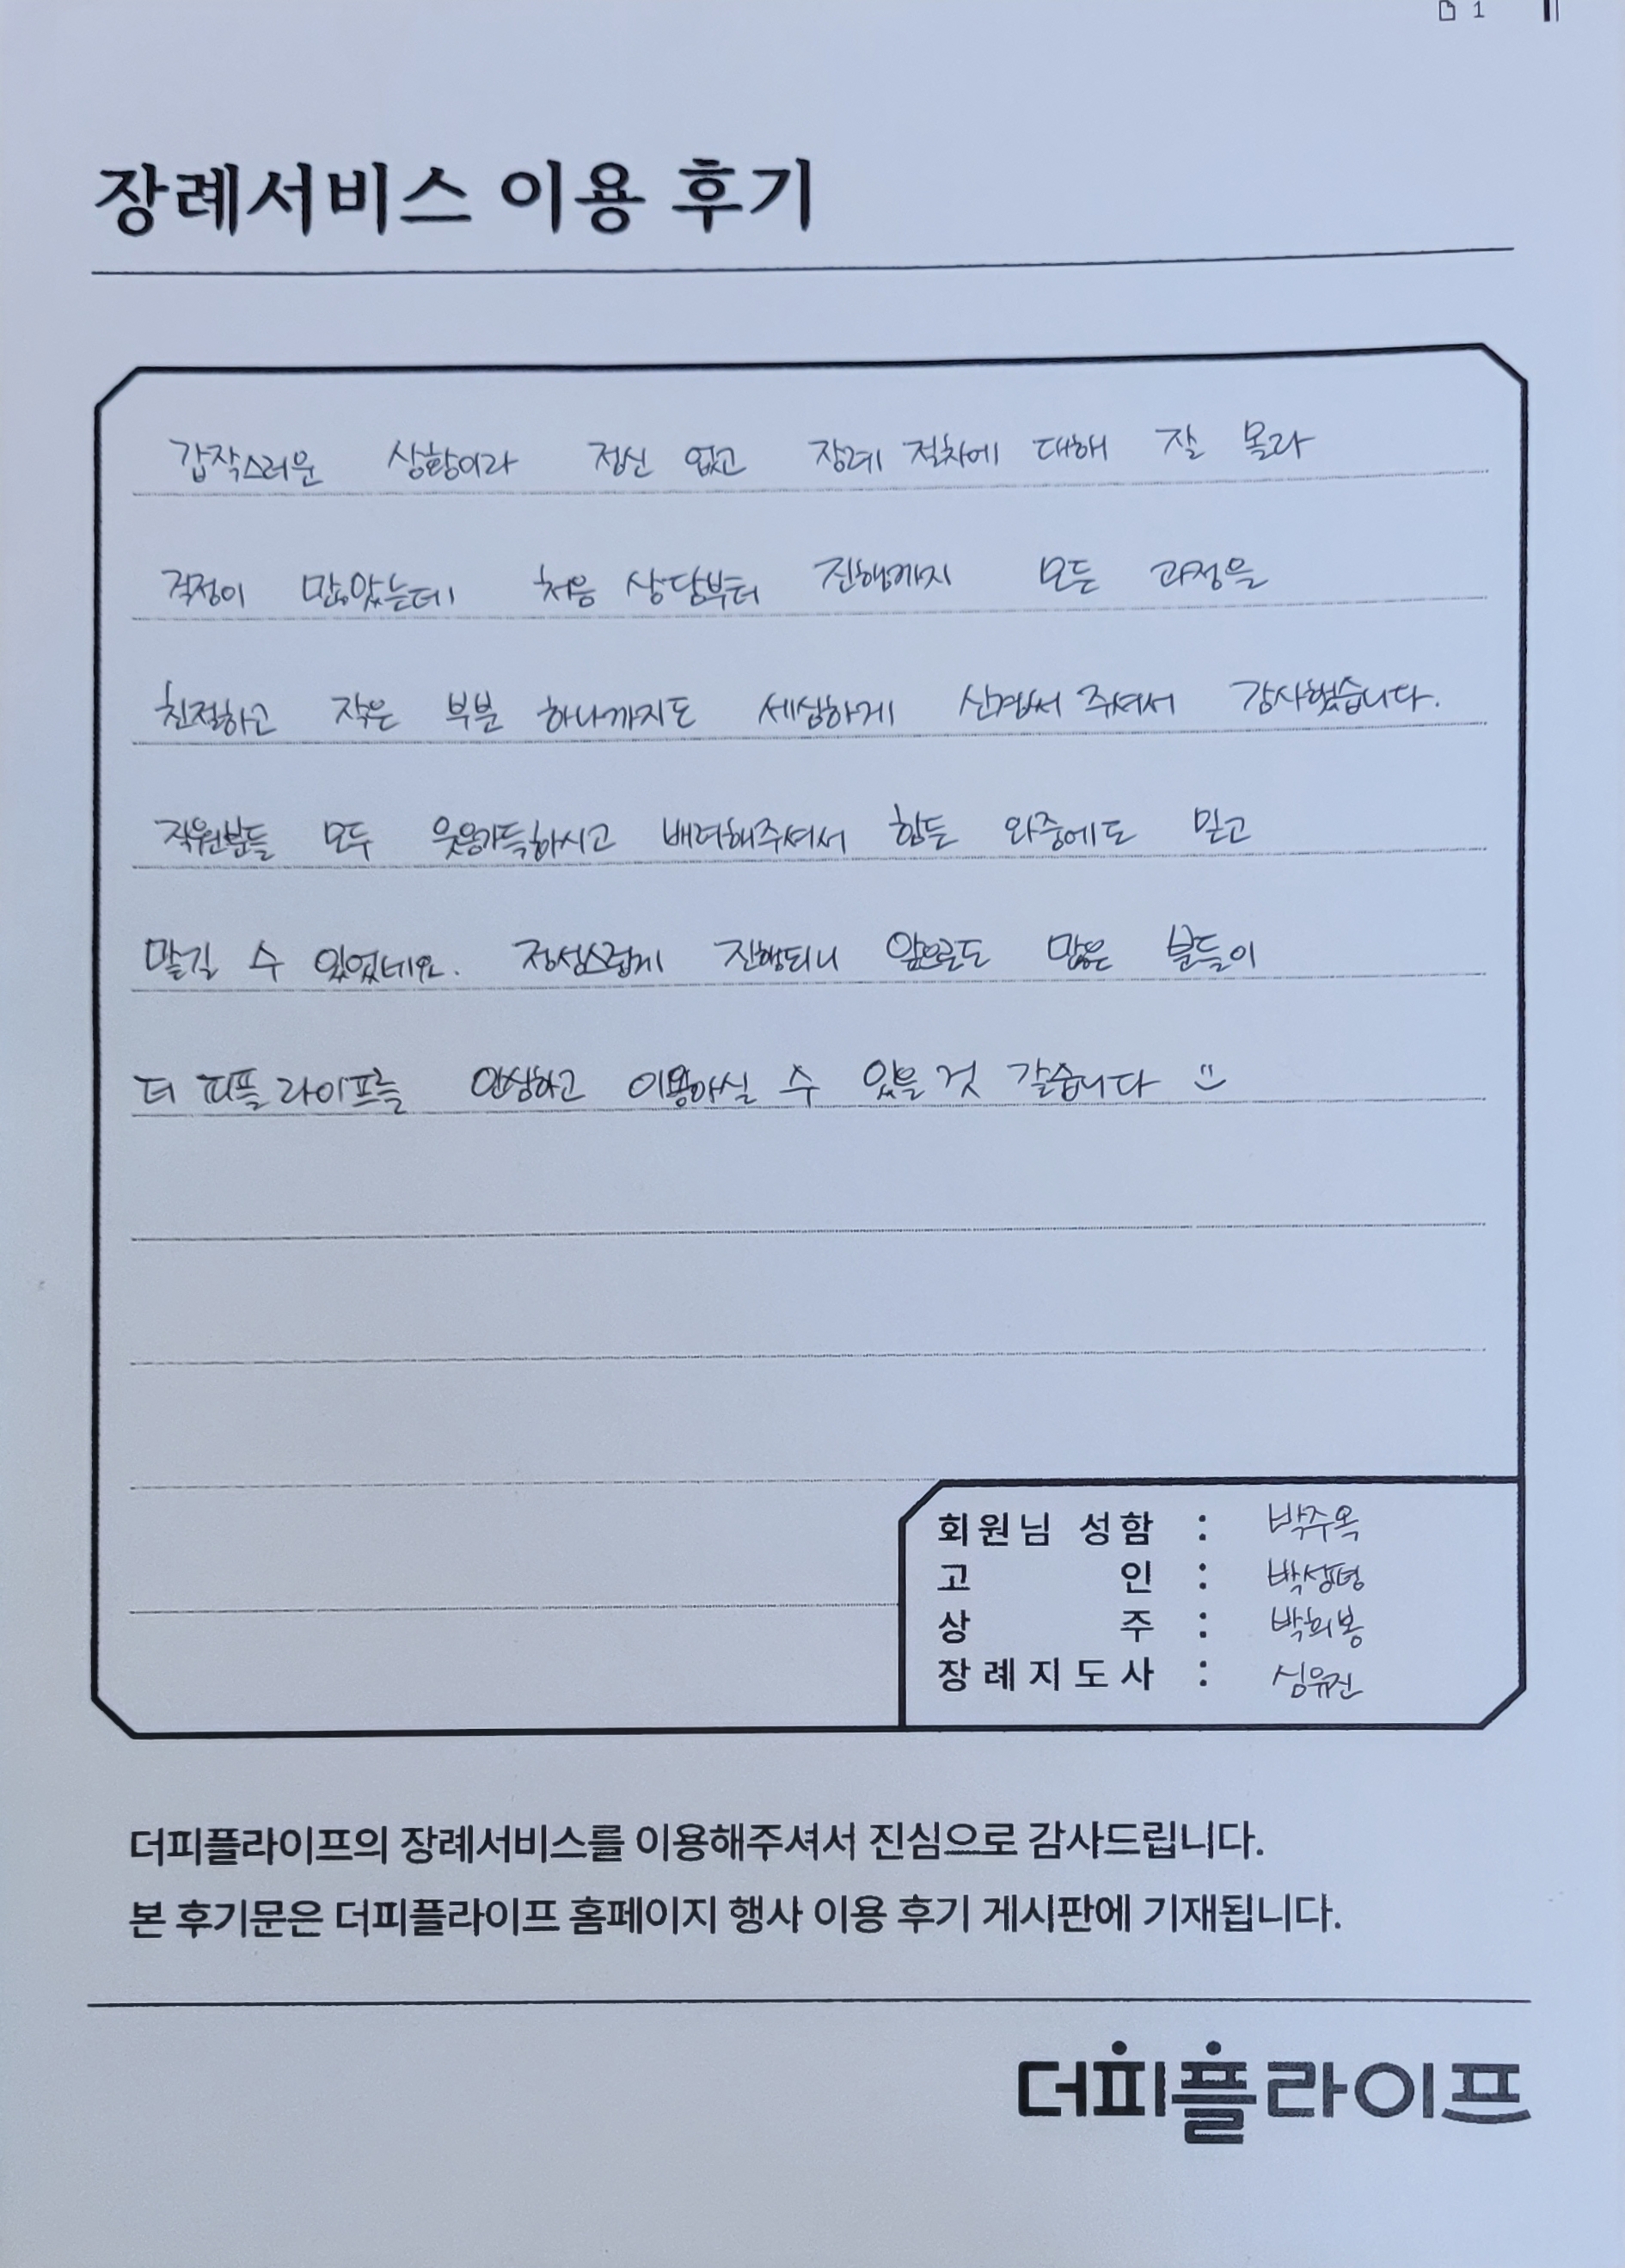 1
장례서비스 이용 후기
갑작스러운 상황이라 정신 없고 장례 절차에 대해 잘 몰라
걱정이 많았는데 처음 상담부터 진행까지 모든 과정을
친절하고 작은 부분 하나까지도 세심하게 신경써 주셔서 감사했습니다.
직원분들 모두 웃음가득하시고 배려해주셔서 힘든 와중에도 믿고
맡길 수 있었네요. 정성스럽게 진행되니 앞으로도 많은 분들이
더 피플 라이프를 안심하고 이용하실 수 있을 것 같습니다
회원님 성함 : 박주옥
고 인 :
상 주 : 박희봉
장례지도사 : 심유진
더피플라이프의 장례서비스를 이용해주셔서 진심으로 감사드립니다.
본 후기문은 더피플라이프 홈페이지 행사 이용 후기 게시판에 기재됩니다.
더피플라이프